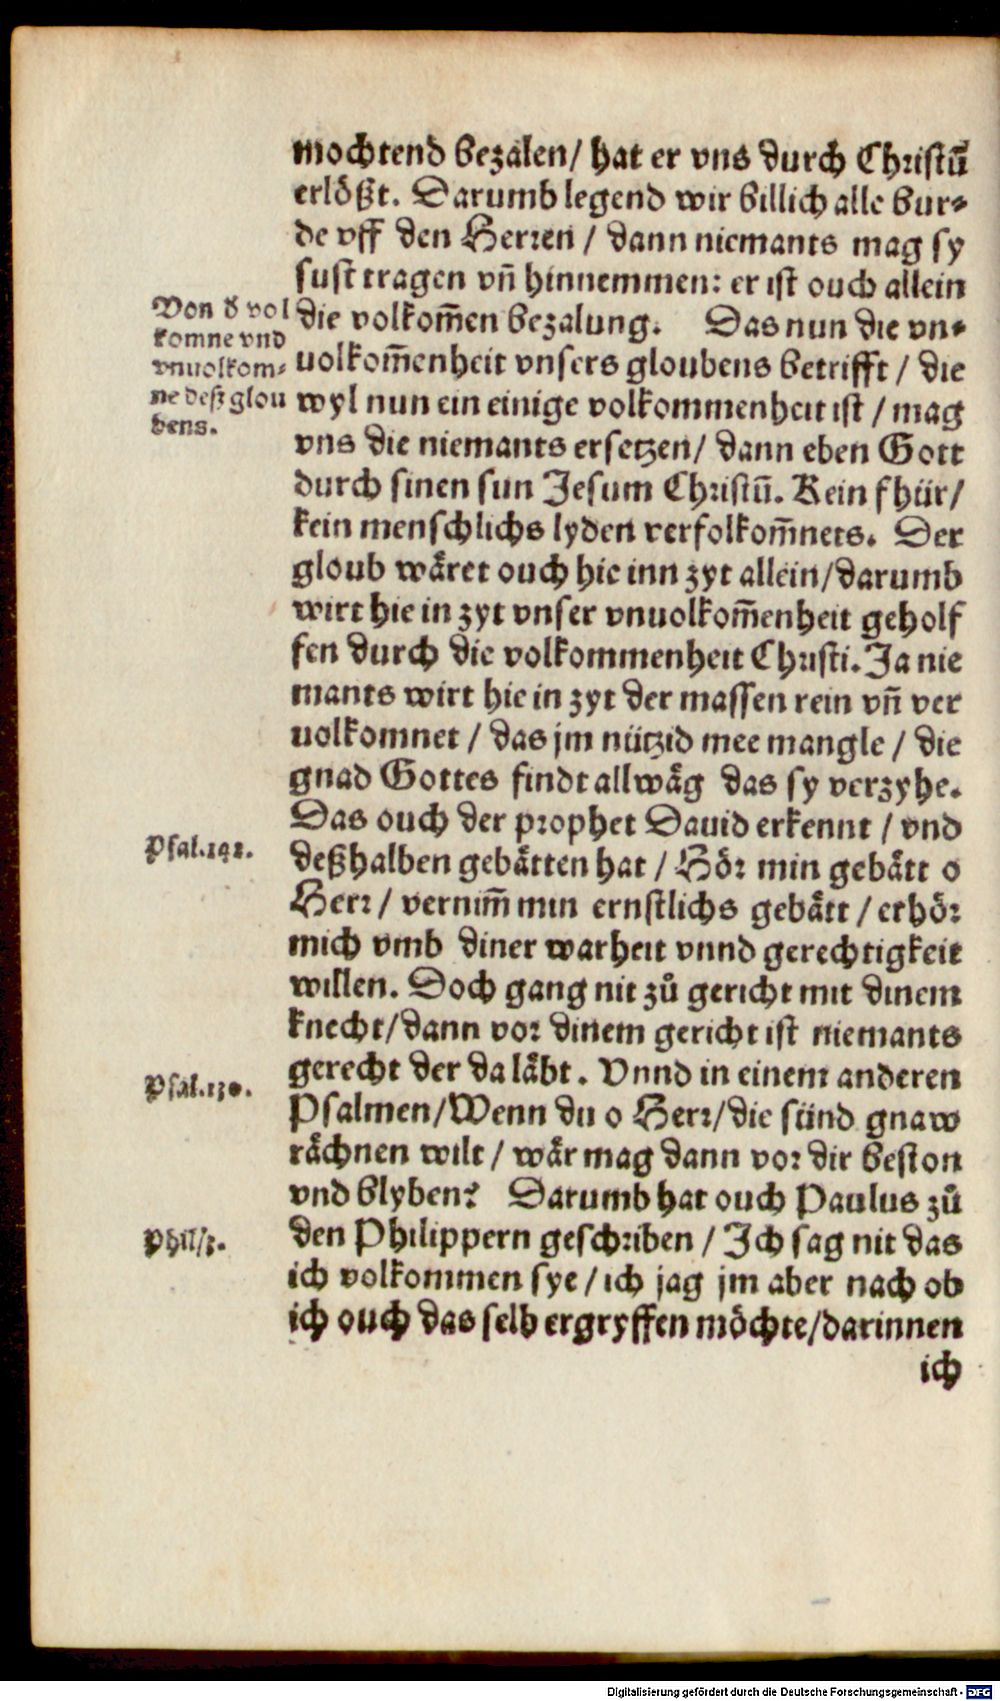 mochtend bezalen/ hat er vns durch Christū
erlößt. Darumb legend wir billich alle bur⸗
de vff den Herren / dann niemants mag sy
sust tragen vn̄ hinnemmen: er ist ouch allein
die volkom̄en bezalung. Das nun die vn⸗
uolkom̄enheit vnsers gloubens betrifft / die
wyl nun ein einige volkommenheit ist / mag
vns die niemants ersetzen/ dann eben Gott
durch sinen sun Jesum Christū. Kein fhür/
kein menschlichs lyden verfolkom̄nets. Der
gloub wäret ouch hie inn zyt allein/darumb
wirt hie in zyt vnser vnuolkom̄enheit geholf
fen durch die volkommenheit Christi. Ja nie
mants wirt hie in zyt der massen rein vn̄ ver
uolkomnet / das jm nützid mee mangle / die
gnad Gottes findt allwäg das sy verzyhe.
Das ouch der prophet Dauid erkennt / vnd
deßhalben gebätten hat / Hör min gebätt o
Herr / vernim̄ min ernstlichs gebätt / erhör
mich vmb diner warheit vnnd gerechtigkeit
willen. Doch gang nit zů gericht mit dinem
knecht/dann vor dinem gericht ist niemants
gerecht der da läbt. Vnnd in einem anderen
Psalmen/Wenn du o Herr/die sünd gnaw
rächnen wilt / wär mag dann vor dir beston
vnd blyben? Darumb hat ouch Paulus zů
den Philippern geschriben / Ich sag nit das
ich volkommen sye / ich jag jm aber nach ob
ich ouch das selb ergryffen möchte/darinnen
ich
Von d̕ vol
komne vnd
vnuolkom⸗
ne deß glou
bens.
Psal.142.
Psal.130.
Phil/3.
Digitalisierung gefördert durch die Deutsche Forschungsgemeinschaft - DFG